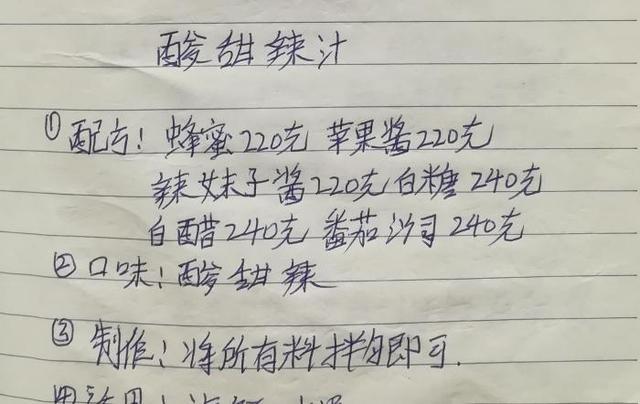 酸甜辣汁
①配方！蜂蜜220克 苹果酱220克
辣妹子酱220克 白糖240克
白醋240克 番茄沙司240克
②口味！酸甜辣
③制作！将所有料拌匀即可.